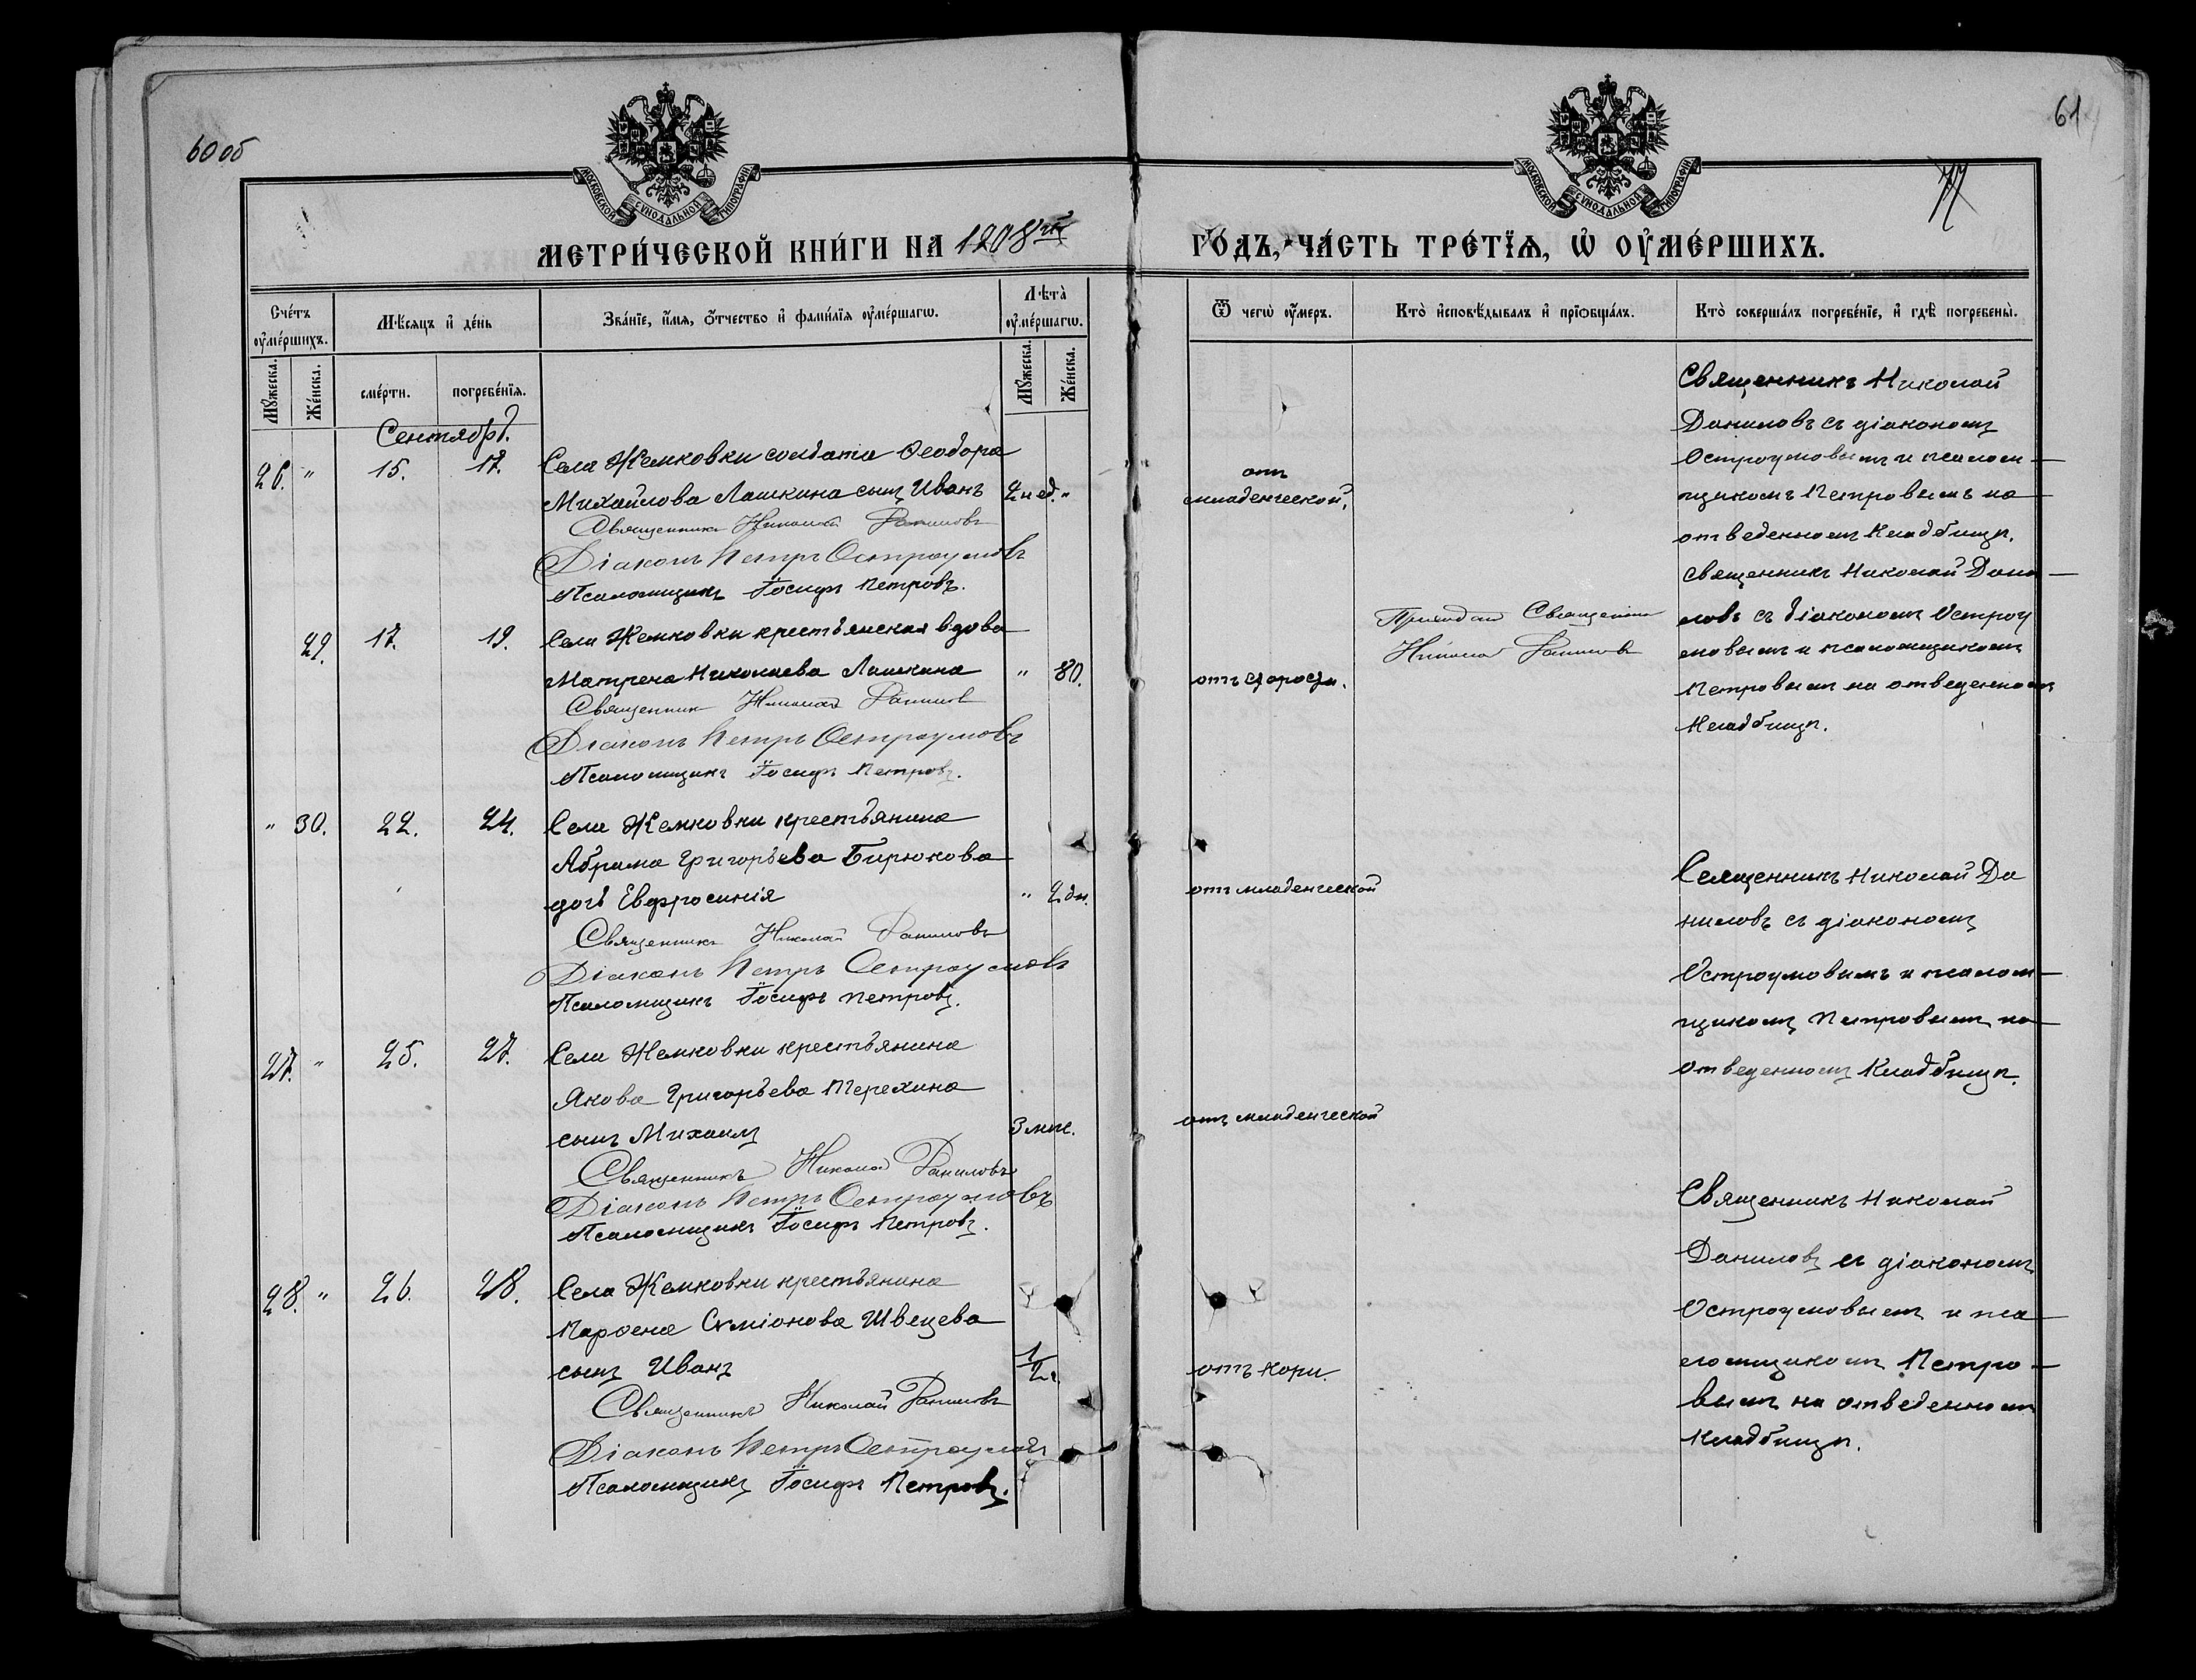 60 об
61
МОСКОВСКОЙ СѴНОДАЛЬНОЙ ТИПОГРАФІИ
МОСКОВСКОЙ СѴНОДАЛЬНОЙ ТИПОГРАФІИ
МЕТРИ́ЧЕСКОЙ КНИ́ГИ НА 1908й
ГО́ДЪ, ЧА́СТЬ ТРЕ́ТІѦ, Ѡ҆ ОУ҆МЕ́РШИХЪ.
Сче́тъ оу҆ме́ршихъ.
Мѣ́сяцъ и҆ де́нь
Зва́нїе, и҆́мя, ѻ҆́тчество и҆ фами́лїя оу҆ме́ршагѡ.
Лѣ́та оу҆ме́ршагѡ.
Ѿ чегѡ̀ оу҆́меръ.
Кто̀ и҆сповѣ́дывалъ и҆ прїѡбща́лъ.
Кто̀ соверша́лъ погребе́нїе, и҆ гдѣ̀ погребены̀.
Мꙋ́жеска.
Же́нска.
сме́рти.
погребе́нїя.
Мꙋ́жеска.
Же́нска.
Сентябрь.
26. " 15. 17. Села Жемковки солдата Ѳеодора
Михайлова Лашкина сынъ Иванъ 2 нед. "
Священникъ Николай Даниловъ
Діаконъ Петръ Остроумовъ
Псаломщикъ Іосифъ Петровъ.
отъ
младенческой.
Священникъ Николай
Даниловъ съ діакономъ
Остроумовымъ и псалом-
щикомъ Петровымъ на
отведенномъ кладбищѣ.
29. 17. 19. Села Жемковки крестьянская вдова
Матрена Николаева Лашкина " 80.
Священникъ Николай Даниловъ
Діаконъ Петръ Остроумовъ
Псаломщикъ Іосифъ Петровъ.
отъ старости.
Священникъ
Николай Даниловъ
Священникъ Николай Дани-
ловъ съ діакономъ Остроу
мовымъ и псаломщикомъ
Петровымъ на отведенномъ
кладбищѣ.
" 30. 22. 24. Села Жемковки крестьянина
Абрама Григорьева Бирюкова
дочь Евфросинія " 2 дн.
Священникъ Николай Даниловъ
Діаконъ Петръ Остроумовъ
Псаломщикъ Іосифъ Петровъ.
отъ младенческой
Священникъ Николай Да
ниловъ съ діакономъ
Остроумовымъ и псалом-
щикомъ Петровымъ на
отведенномъ кладбищѣ.
27. " 25. 27. Села Жемковки крестьянина
Якова Григорьева Терехина
сынъ Михаилъ 3 мѣс.
Священникъ Николай Даниловъ
Діаконъ Петръ Остроумовъ
Псаломщикъ Іосифъ Петровъ.
отъ младенческой
28. " 26. 28. Села Жемковки крестьянина
Парѳена Симіонова Швецева
сынъ Иванъ 1/2 г.
Священникъ Николай Даниловъ
Діаконъ Петръ Остроумовъ
Псаломщикъ Іосифъ Петровъ.
отъ кори.
Священникъ Николай
Даниловъ съ діакономъ
Остроумовымъ и пса-
ломщикомъ Петро-
вымъ на отведенномъ
кладбищѣ.